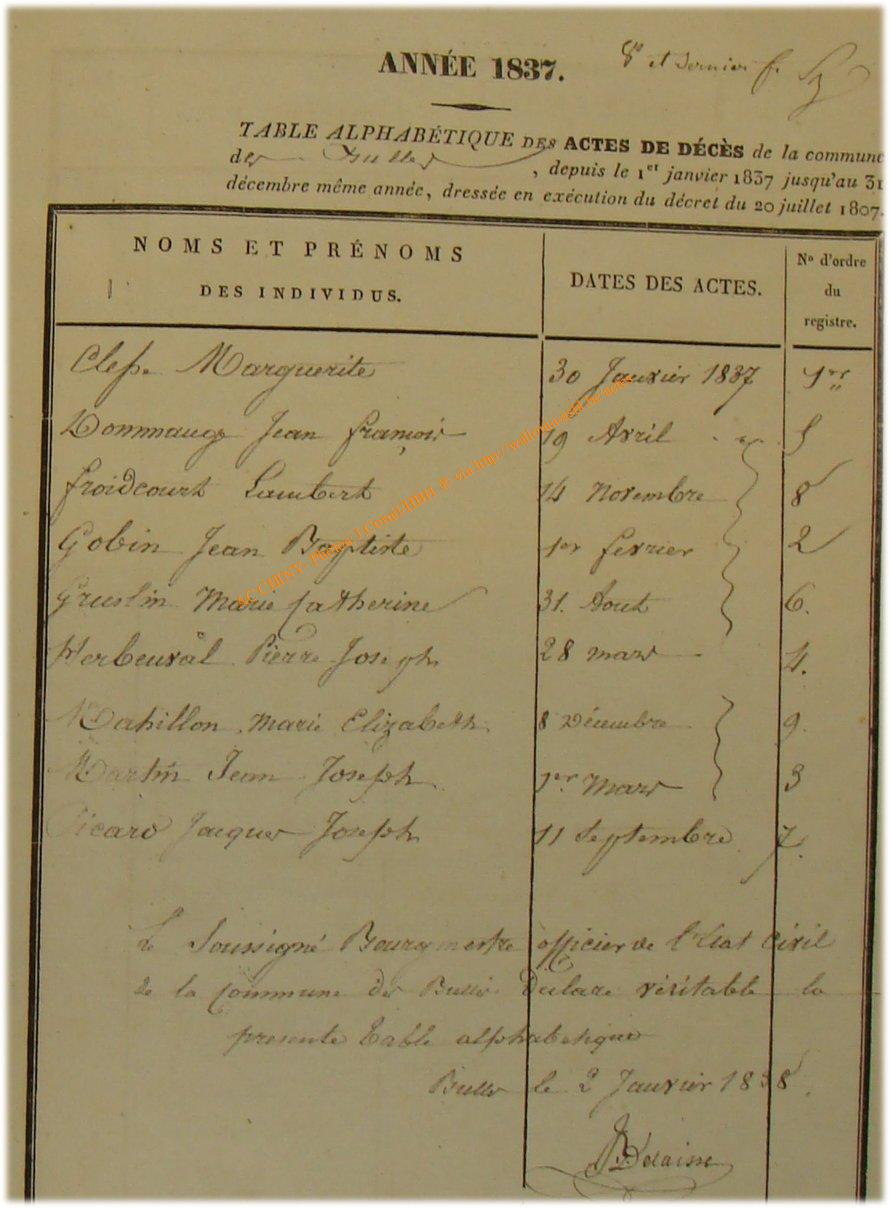 ANNÉE 1837.
8e et dernier f.
TABLE ALPHABÉTIQUE DES ACTES DE DÉCÈS de la commune
de Bulles, depuis le 1er janvier 1837 jusqu'au 31
décembre même année, dressée en exécution du décret du 20 juillet 1807.
NOMS ET PRÉNOMS
DES INDIVIDUS.
DATES DES ACTES.
No d'ordre
du
registre.
Marguerite 30 Janvier 1837 1er
Jean françois 19 Avril 5
froidcourt Lambert 14 Novembre 8
Gobin Jean Baptiste 1er fevrier 2
Gruslin Marie Catherine 31. Aout 6.
Herbeuval Pierre Joseph 28 mars 4.
Mahillon Marie Elizabeth 8 Décembre 9.
Martin Jean Joseph 1er Mars 3
Picard Jacques Joseph 11 Septembre 7.
Le Soussigné Bourgmestre officier de l'Etat Civil
de la Commune de Bulles Déclare véritable la
presente table alphabetique
Bulles le 2 Janvier 1838.
ACCHINY- Photos J.Comd/HBH ® via http://